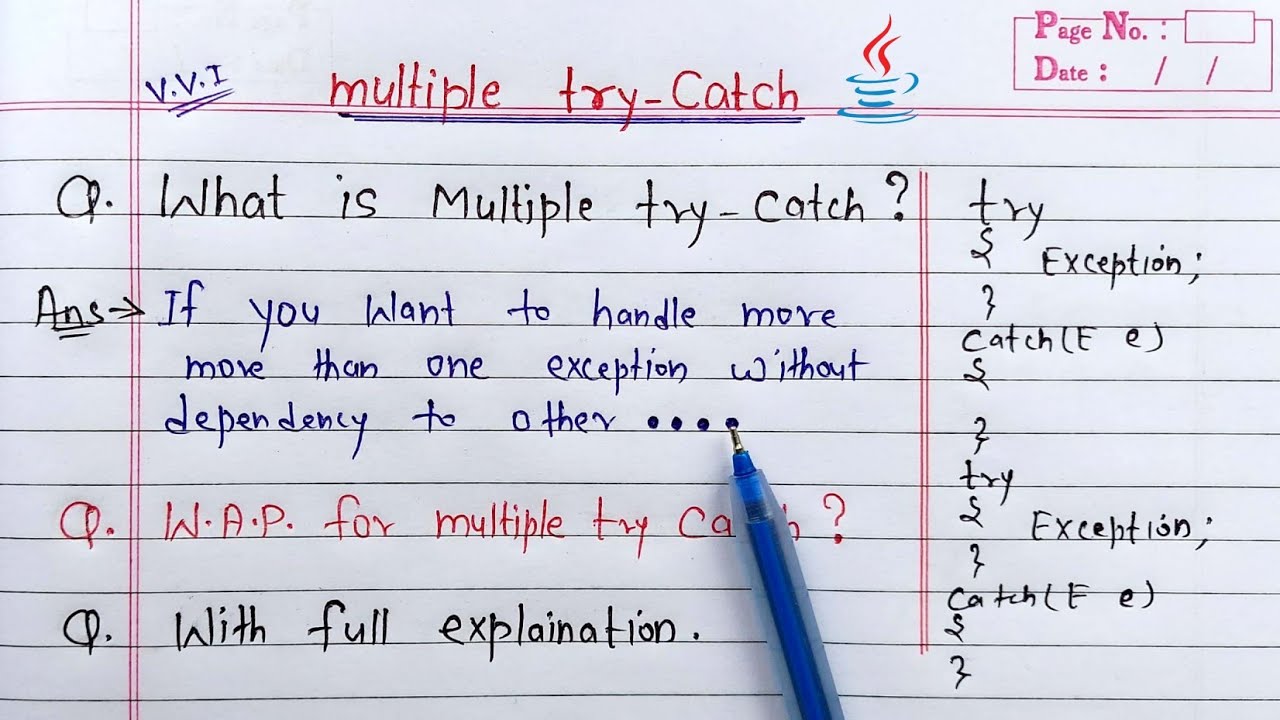 Page No. :
Date : / /
V.V.I
multiple try-Catch
Q. What is Multiple try-Catch?
Ans → If you Want to handle more
more than one exception without
dependency to other ....
Q. W.A.P. for multiple try Catch?
Q. With full explaination.
try
{
Exception;
}
Catch(E e)
{
}
try
{
Exception;
}
Catch(E e)
{
}